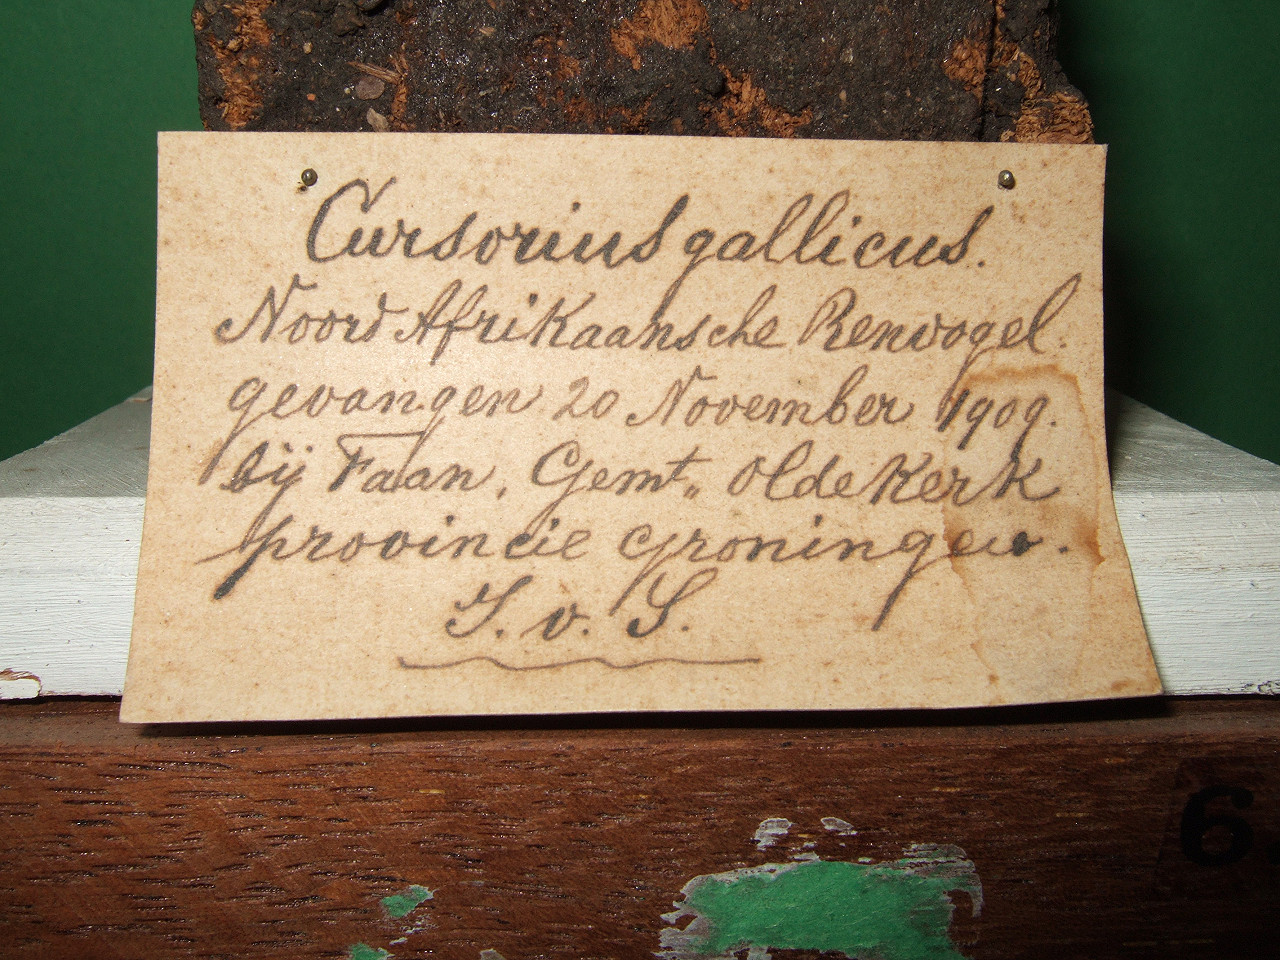 Cursorius gallicus.
Noord Afrikaansche Renvogel.
gevangen 20 November 1909.
bij Faan, Gemt„ Oldekerk
provincie Groningen.
J. v. S.
6